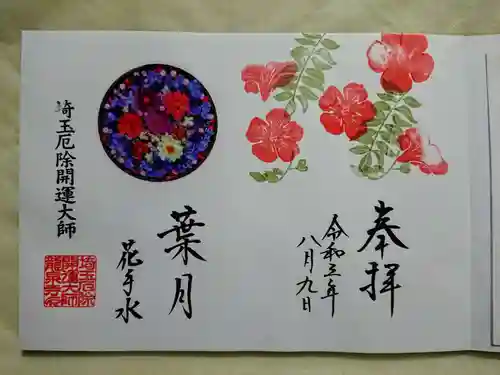 奉拝
令和三年
八月九日
葉月
花手水
埼玉厄除開運大師
埼玉厄除
開運大師
龍泉寺